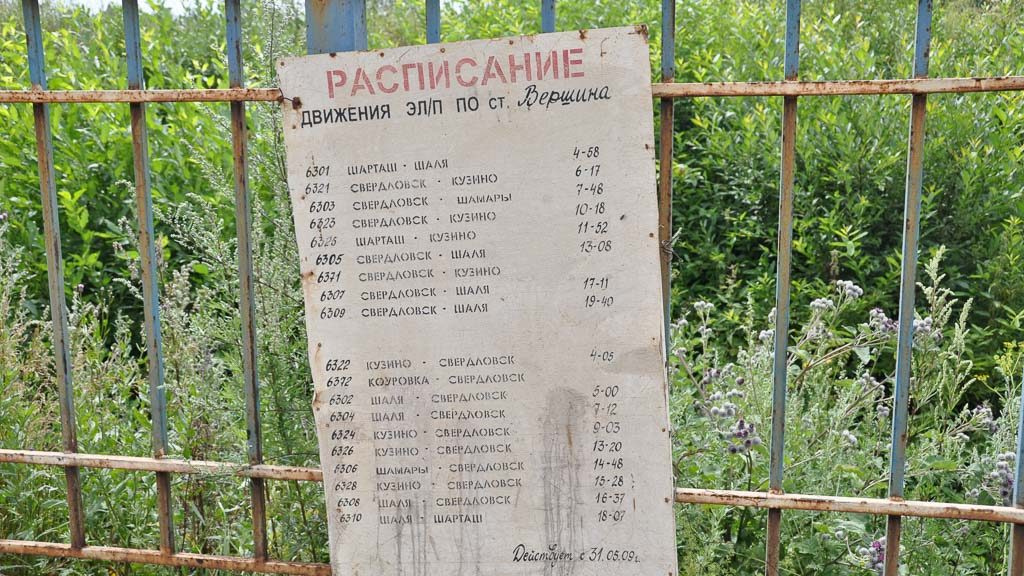 РАСПИСАНИЕ
ДВИЖЕНИЯ ЭЛ/П ПО СТ. Вершина
6301 ШАРТАШ - ШАЛЯ 4-58
6321 СВЕРДЛОВСК - КУЗИНО 6-17
6303 СВЕРДЛОВСК - ШАМАРЫ 7-48
6323 СВЕРДЛОВСК - КУЗИНО 10-18
6325 ШАРТАШ - КУЗИНО 11-52
6305 СВЕРДЛОВСК - ШАЛЯ 13-08
6371 СВЕРДЛОВСК - КУЗИНО
6307 СВЕРДЛОВСК - ШАЛЯ 17-11
6309 СВЕРДЛОВСК - ШАЛЯ 19-40
6322 КУЗИНО - СВЕРДЛОВСК 4-05
6372 КОУРОВКА - СВЕРДЛОВСК
6302 ШАЛЯ - СВЕРДЛОВСК 5-00
6304 ШАЛЯ - СВЕРДЛОВСК 7-12
6324 КУЗИНО - СВЕРДЛОВСК 9-03
6326 КУЗИНО - СВЕРДЛОВСК 13-20
6306 ШАМАРЫ - СВЕРДЛОВСК 14-48
6328 КУЗИНО - СВЕРДЛОВСК 15-28
6308 ШАЛЯ - СВЕРДЛОВСК 16-37
6310 ШАЛЯ - ШАРТАШ 18-07
Действует с 31.05.09г.